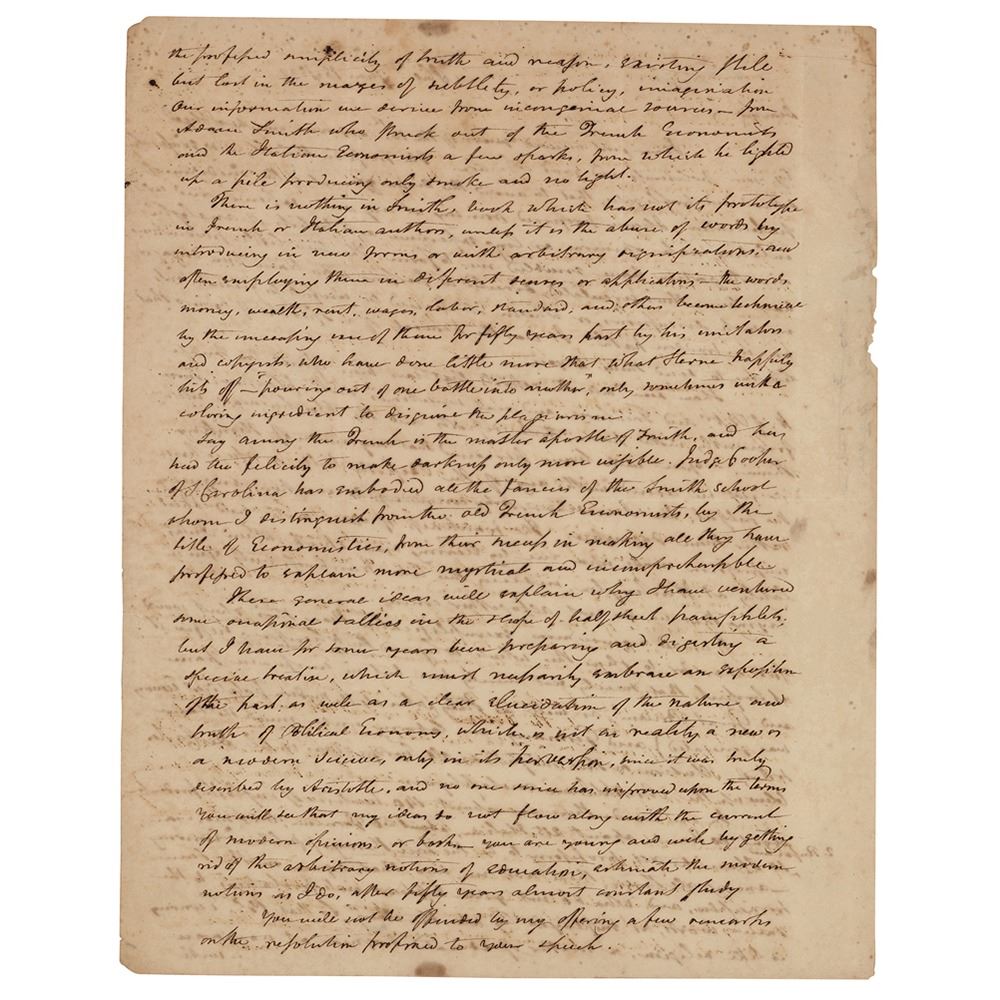 the professed simplicity of truth and reason, existing still
but lost in the mazes of subtlety, or policy, imagination
Our information we derive from incongenial sources — from
Adam Smith who struck out of the French Economists
and the Italian Economists a few sparks, from which he lighted
up a pile producing only smoke and no light.
There is nothing in Smiths book which has not its prototype
in French or Italian authors, unless it is the abuse of words by
introducing in new forms or with arbitrary significations, and
often employing them in different senses or applications — the words
money, wealth, rent, wages, labor, standard, and others become technical
by the increasing use of them for fifty years past by his imitators
and copyists, who have done little more that what Sterne happily
hits off — "pouring out of one bottle into another", only sometimes with a
coloring ingredient to disguise the plagiarism
Say among the French is the master apostle of Smith, and has
had the felicity to make darkness only more visible. Judge Cooper
of S. Carolina has embodied all the fancies of the Smith school
whom I distinguish from the old French Economists, by the
title of Economistics, from their success in making all they have
professed to explain more mystical and incomprehensible
These general ideas will explain why I have ventured
some occasional sallies in the shape of half sheet pamphlets,
but I have for some years been preparing and digesting a
special treatise, which must necessarily embrace an exposition
of the past, as well as a clear elucidation of the nature and
truth of Political Economy, which is not in reality a new or
a modern science, only in its perversion, since it was truly
described by Aristotle, and no one since has improved upon the terms
You will see that my ideas do not flow along with the current
of modern opinions, or books — you are young and will by getting
rid of the arbitrary notions of education, estimate the modern
notions as I do, after fifty years almost constant study
You will not be offended by my offering a few remarks
on the resolution prefixed to your speech.